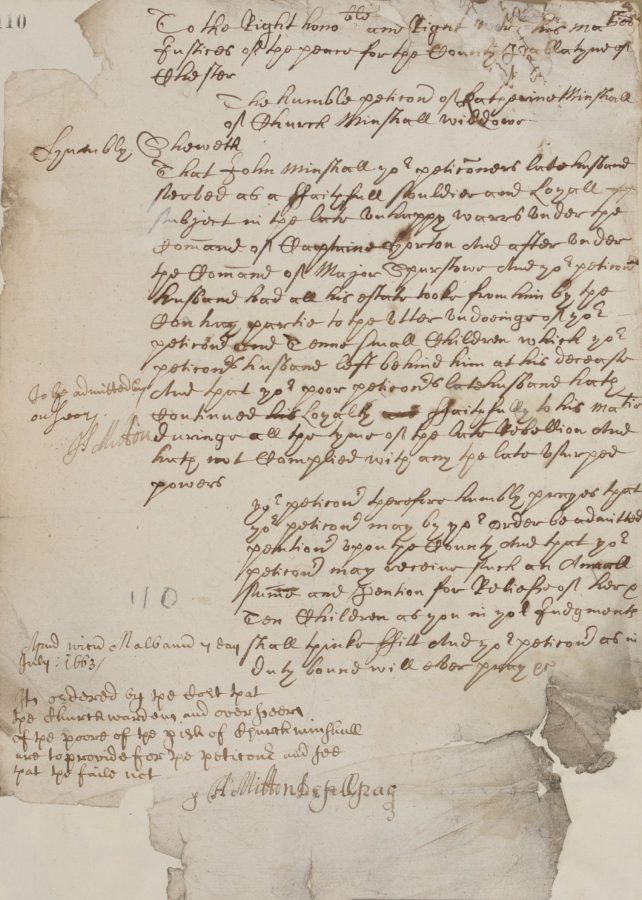 110
To the Right hono:ble and Right wor: his Maties
Justices of the peace for the County Pallatyne of
Chester
The humble peticon of Katherine Minshall
of Church Minshall widdowe
Humbly Sheweth
That John Minshall yor: peticoners late husband
served as a ffaithfull souldier and Loyall
subject in the late unhappy warrs under the
Comand of Captaine Gorton And after under
the Comand of Major Spurstowe And yor: peticonrs
husband had all his estate tooke from him by the
Contrary partie to the utter undoeinge of yor:
peticonr and Tenne small Children which yor:
peticonrs husband left behind him at his decease
And that yor: poor peticonrs late husband hath
Continued his Loyalty and ffaithfully to his Matie
duringe all the tyme of the late Rebellion And
hath not Complied with any the late Usurped
powers
To be admitted
Jo: Mitton
yor: peticonr therefore humbly prayes that
yor: peticonr may by yor: order be admitted
pention upon the County And that yor:
peticonr may receive such an Anuall
sume and Pention for Reliefe of her
Ten Children as you in yor: Judgments
shall thinke ffitt And yor: peticonr as in
duty bound will ever pray &c
110
Apud wicu Malbanu
July: 1663/
It is ordered by the Cort that
the Churchwardens and overseers
of the poore of the pish of Church minshull
are to provide for the peticonr and see
that the faile not
p Jo: Mitton